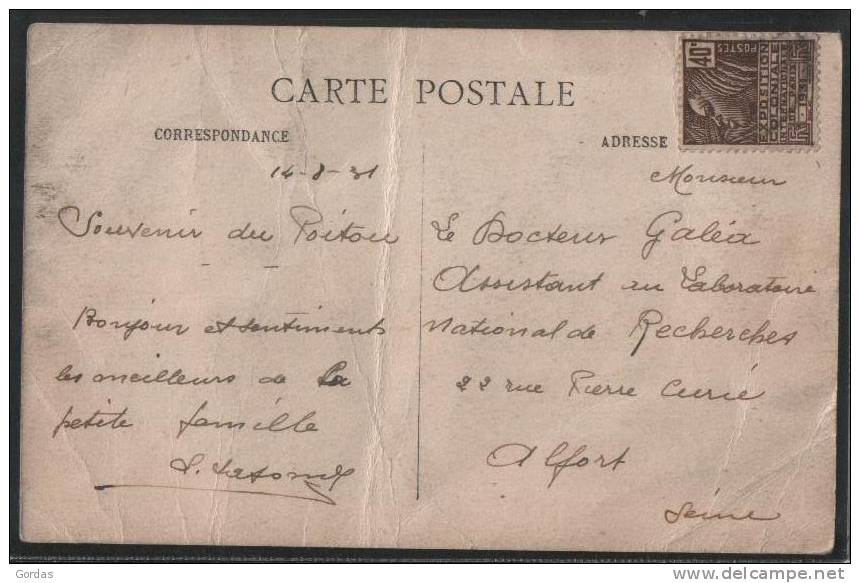 CARTE POSTALE
CORRESPONDANCE
14-8-31
Souvenir du Poitou
Bonjour et sentiments
les meilleurs de la
petite famille
ADRESSE
Monsieur
Le Docteur Galéa
Assistant au Laboratoire
National de Recherches
22 rue Pierre Curie
Alfort
Seine
40c
POSTES
EXPOSITION
COLONIALE
INTERNATIONALE
DE PARIS
1931
Gordas
delcampe.net